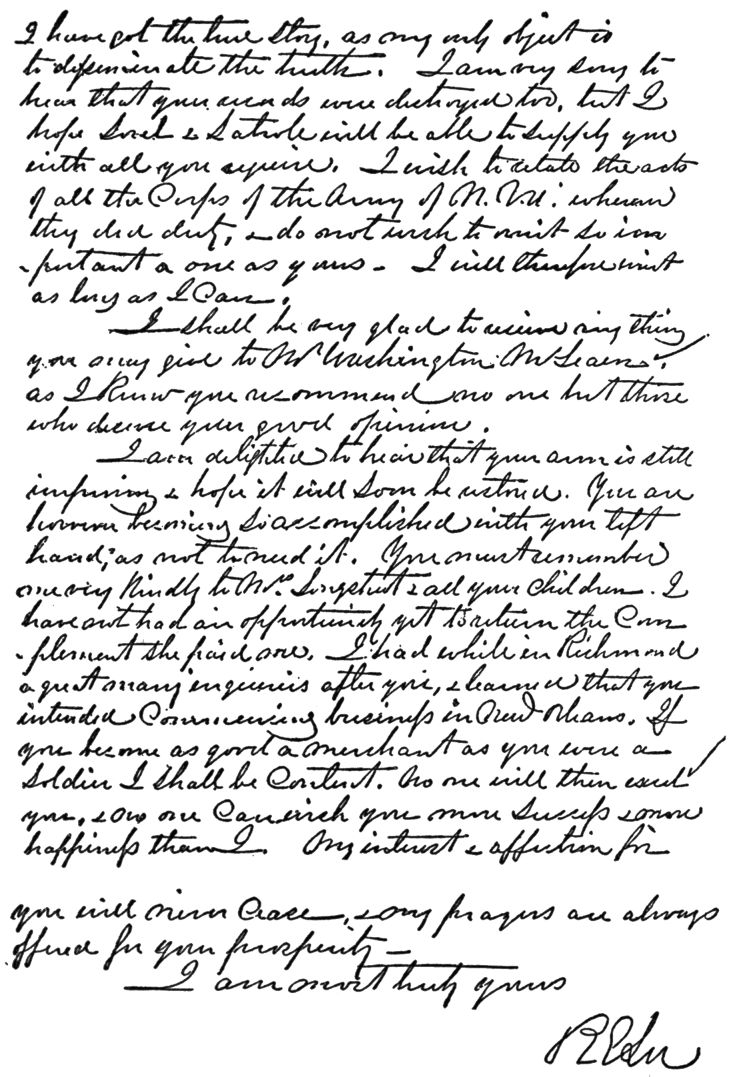 I have got the true story, as my only object is
to disseminate the truth. I am very sorry to
hear that your records were destroyed too, but I
hope Sorrel & Latrobe will be able to supply you
with all you require. I wish to relate the acts
of all the Corps of the Army of N. Va. wherever
they did duty, & do not wish to omit so im
-portant a one as yours – I will therefore wait
as long as I can.
I shall be very glad to receive anything
you may give to Mr. Washington McLean,
as I know you recommend no one but those
who deserve your good opinion.
I am delighted to hear that your arm is still
improving & hope it will soon be restored. You are
however becoming so accomplished with your left
hand, as not to need it. You must remember
me very kindly to Mrs. Longstreet & all your children. I
have not had an opportunity yet to return the Com
-plement she paid me. I had while in Richmond
a great many enquiries after you, & learned that you
intended Commencing business in New Orleans. If
you become as good a merchant as you were a
soldier I shall be Content. No one will then excel
you, & no one Can wish you more success & more
happiness than I. My interest & affection for
you will never Cease, & my prayers are always
offered for your prosperity –
I am most truly yours
R E Lee